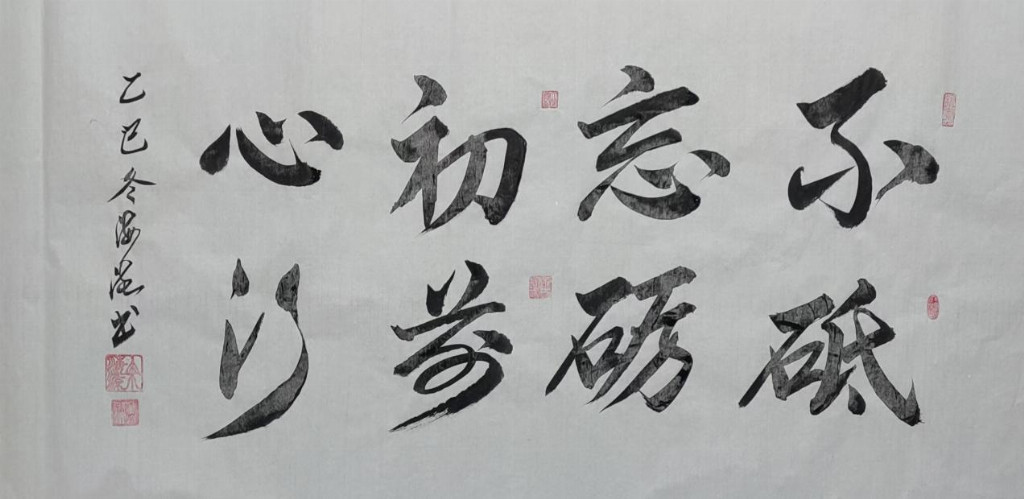 不砥
忘砺
初前
心行
乙巳冬海岩书